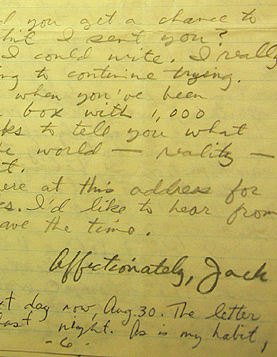 you get a chance to
I sent you?
I could write. I really
to continue trying.
when you've been
box with 1,000
to tell you what
world — reality —
at this address for
I'd like to hear from
the time.
Affectionately, Jack
day now, Aug. 30. The letter
night. As is my habit,
-6-